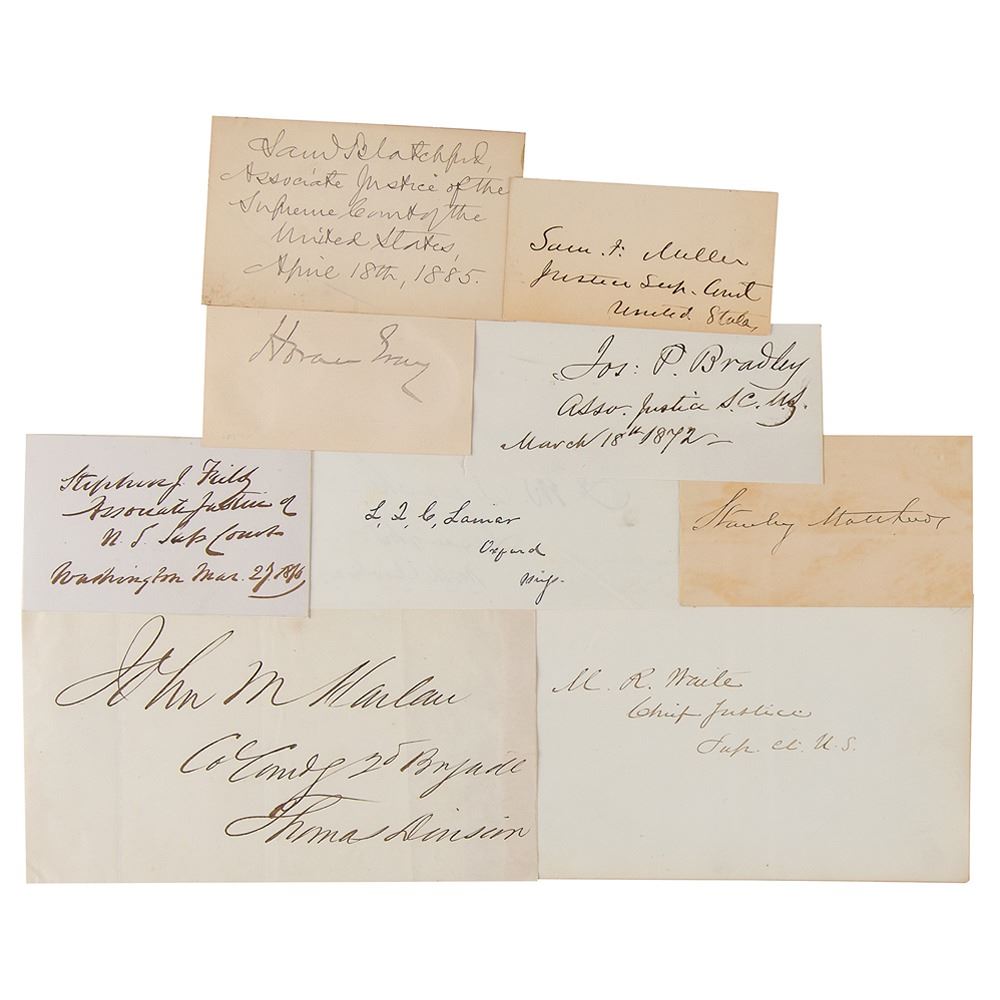 Saml Blatchford,
Associate Justice of the
Supreme Court of the
United States,
April 18th, 1885.
Sam. F. Miller
Justice Sup. Court
United States
Horace Gray
Jos: P. Bradley
Asso. Justice S.C. U.S.
March 18th 1872
Stephen J. Field
Associate Justice of
U. S. Sup Court
Washington Mar. 27
L. Q. C. Lamar
Oxford
Miss.
Stanley Matthews
John M Harlan
Col Comdg 2d Brigade
Thomas Division
M. R. Waite
Chief Justice
Sup. Ct. U.S.